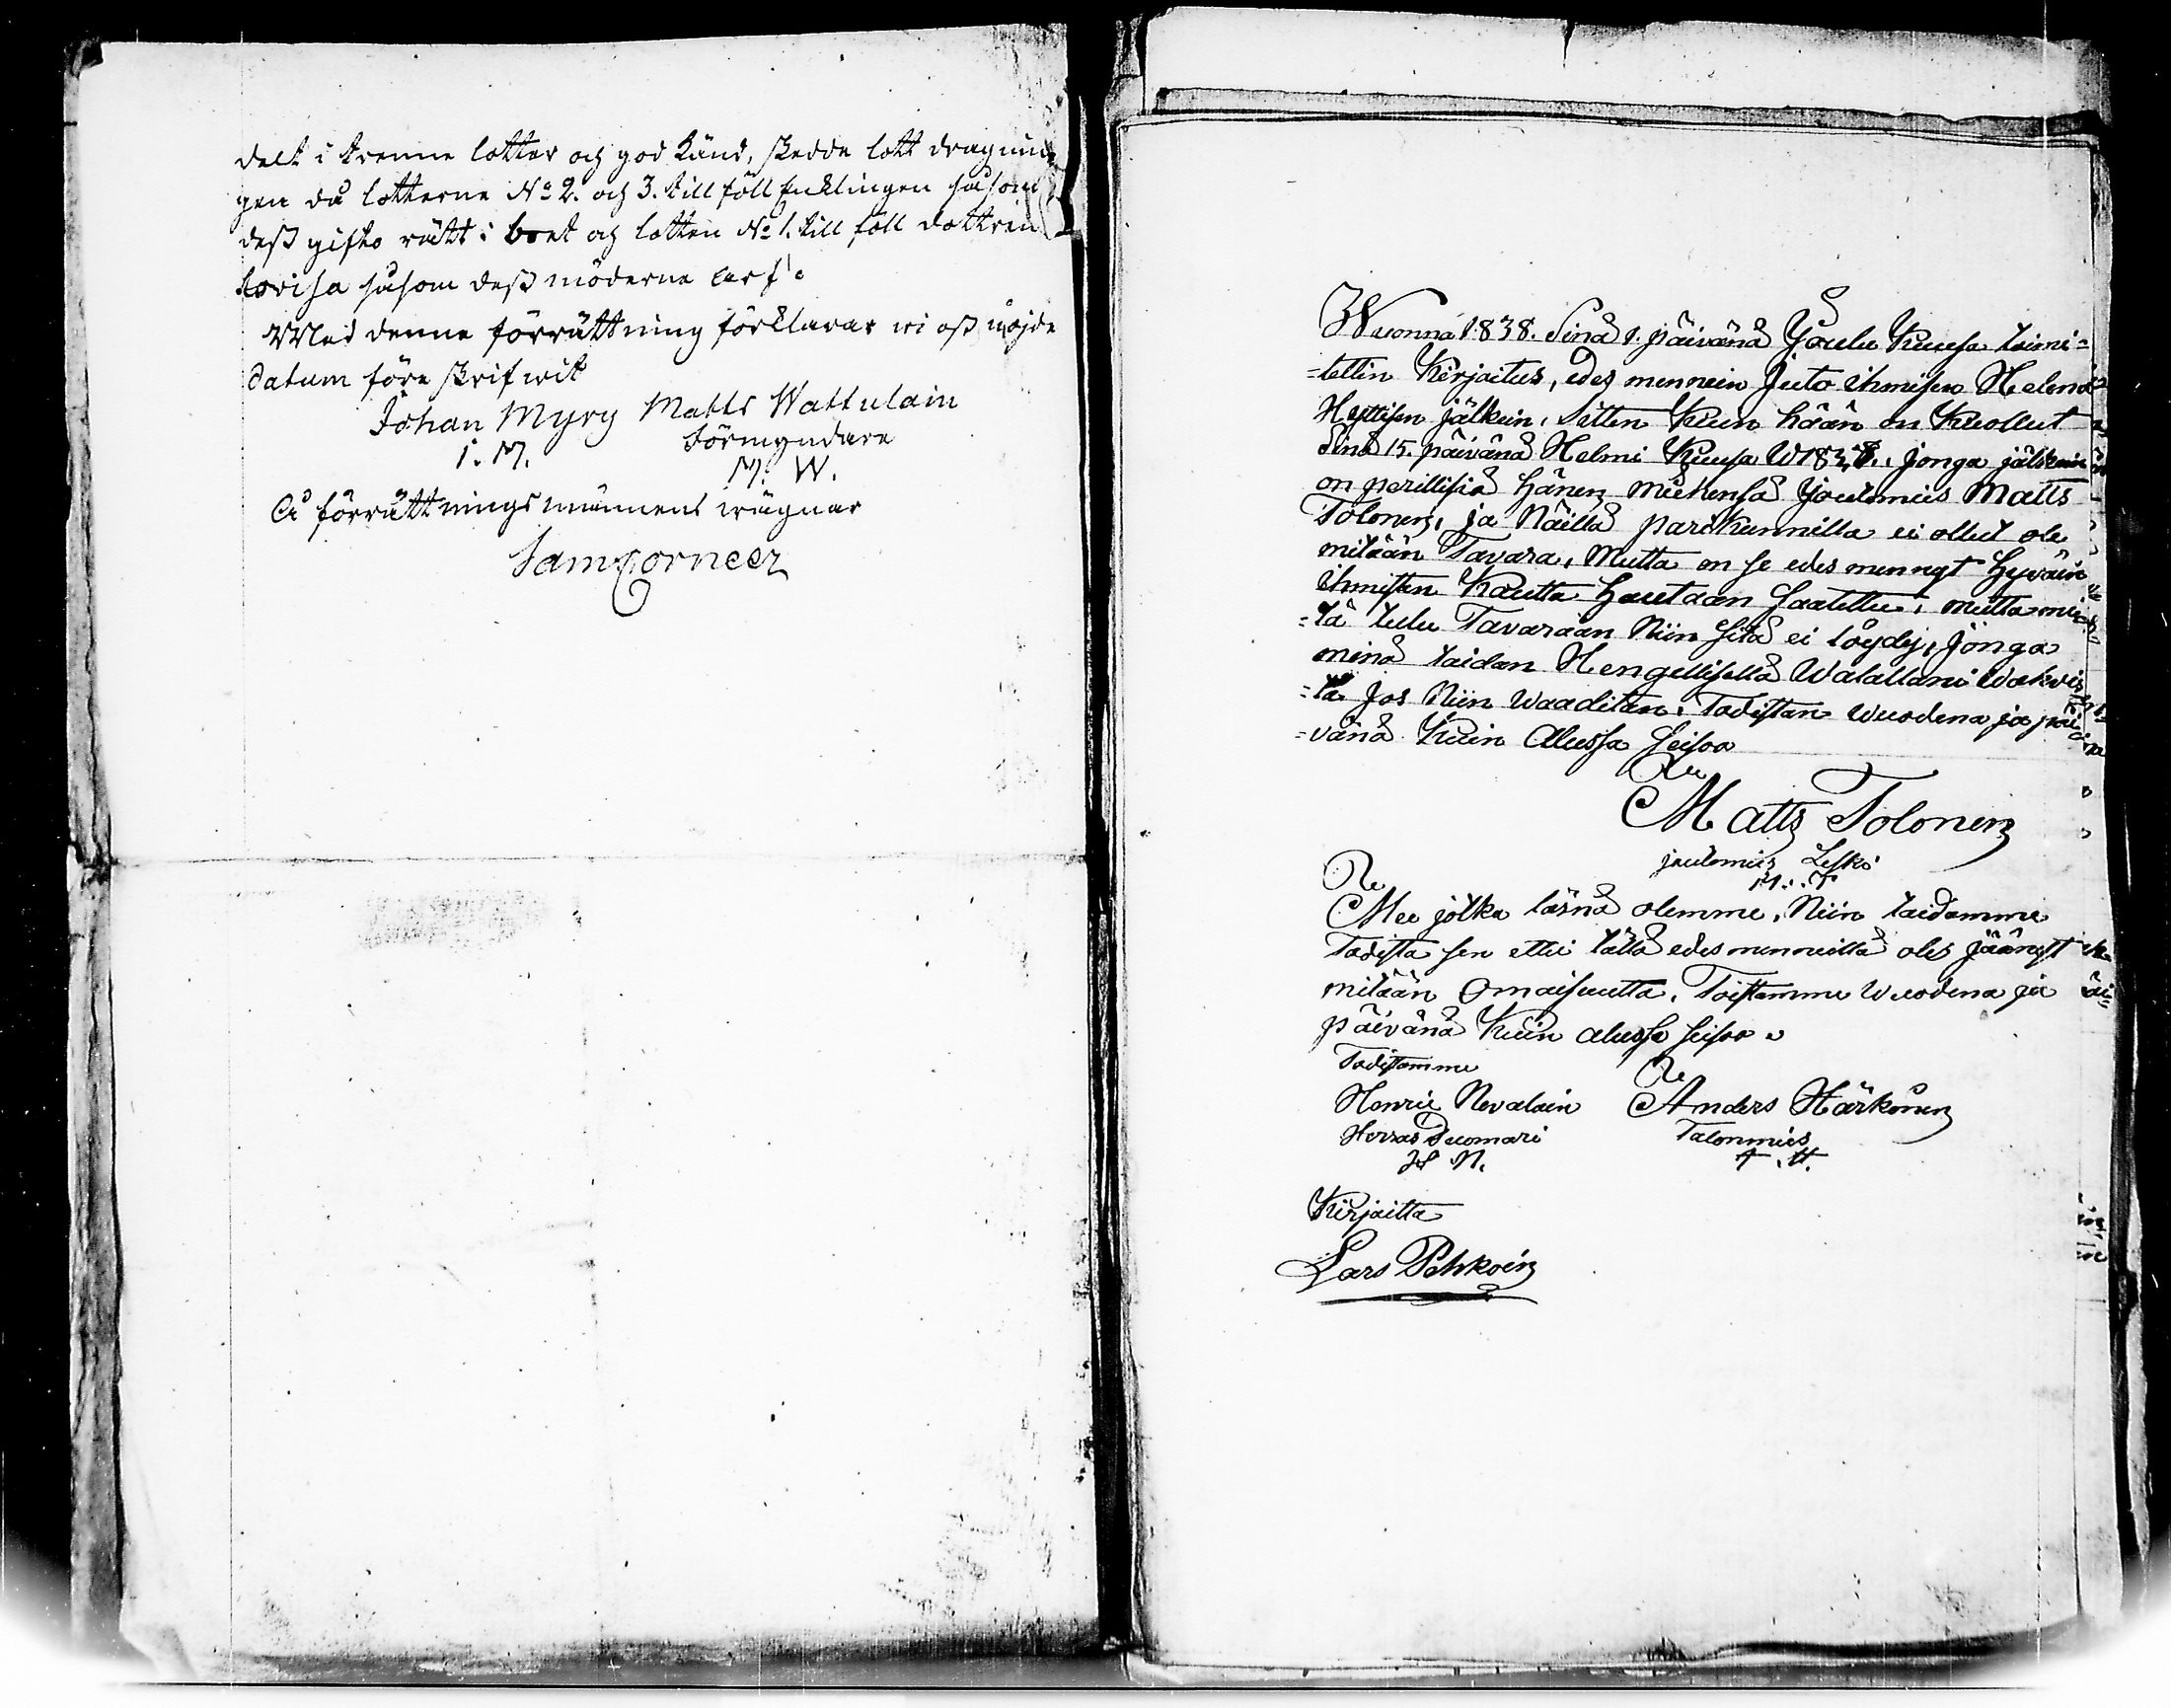 delt i trenne lotter och god känd, skedde lott dragnin
gen då lotterne No 2. och 3. till föll Enklingen såsom
dess gifto rätt i boet och lotten No 1. till föll dottren
Lovisa såsom dess möderne arf.
Med denne förrättning förklarar vi oss nöjde
datum före skrifwit
Johan Myry Matts Wattulain
förmyndare
I. M. M. W.
Å förrättningsmännens wägnar
Sam Corneer
Wuonna 1838. Sinä 1. päivänä Joulu Kuusa toimi=
=tettin Kirjaitus, edes mennein Juto ihmisen Helena
Heyttisen jälkein, Sitten Kuin hään on Kuollut
Sinä 15. päivänä Helmi Kuusa W 1838., jonga jälkein
on perillisiä hänen miehensä Joulomies Matts
Tolonen, ja Näillä pariskunnilla ei ollut ole
mitään Tavara, Mutta on se edes mennyt hyväin
ihmisten Kautta hautaan saatettu, mutta mi
=tä tulu Tavaraan Niin sitä ei löydy, Jonga
minä taidan Hengellisellä Walallani Wahvis
=ta Jos Niin Waaditan, Todistan Wuodena ja päi
=vänä Kuin Alussa seisoo
Matts Tolonen
joulomies Leski
M. T
Mee jotka läsnä olemme, Niin taidamme
Todista sen ettei tältä edesmenneiltä oles jäänyt
mitään Omaisuutta, Toistamme Wuodena ja
päivänä Kuin alussa seisoo
Todistamme
Henric Nevalain Anders Härkönen
Herras Tuomari Talonmies
H N. A. H.
Kirjoitta
Lars Pehkoin